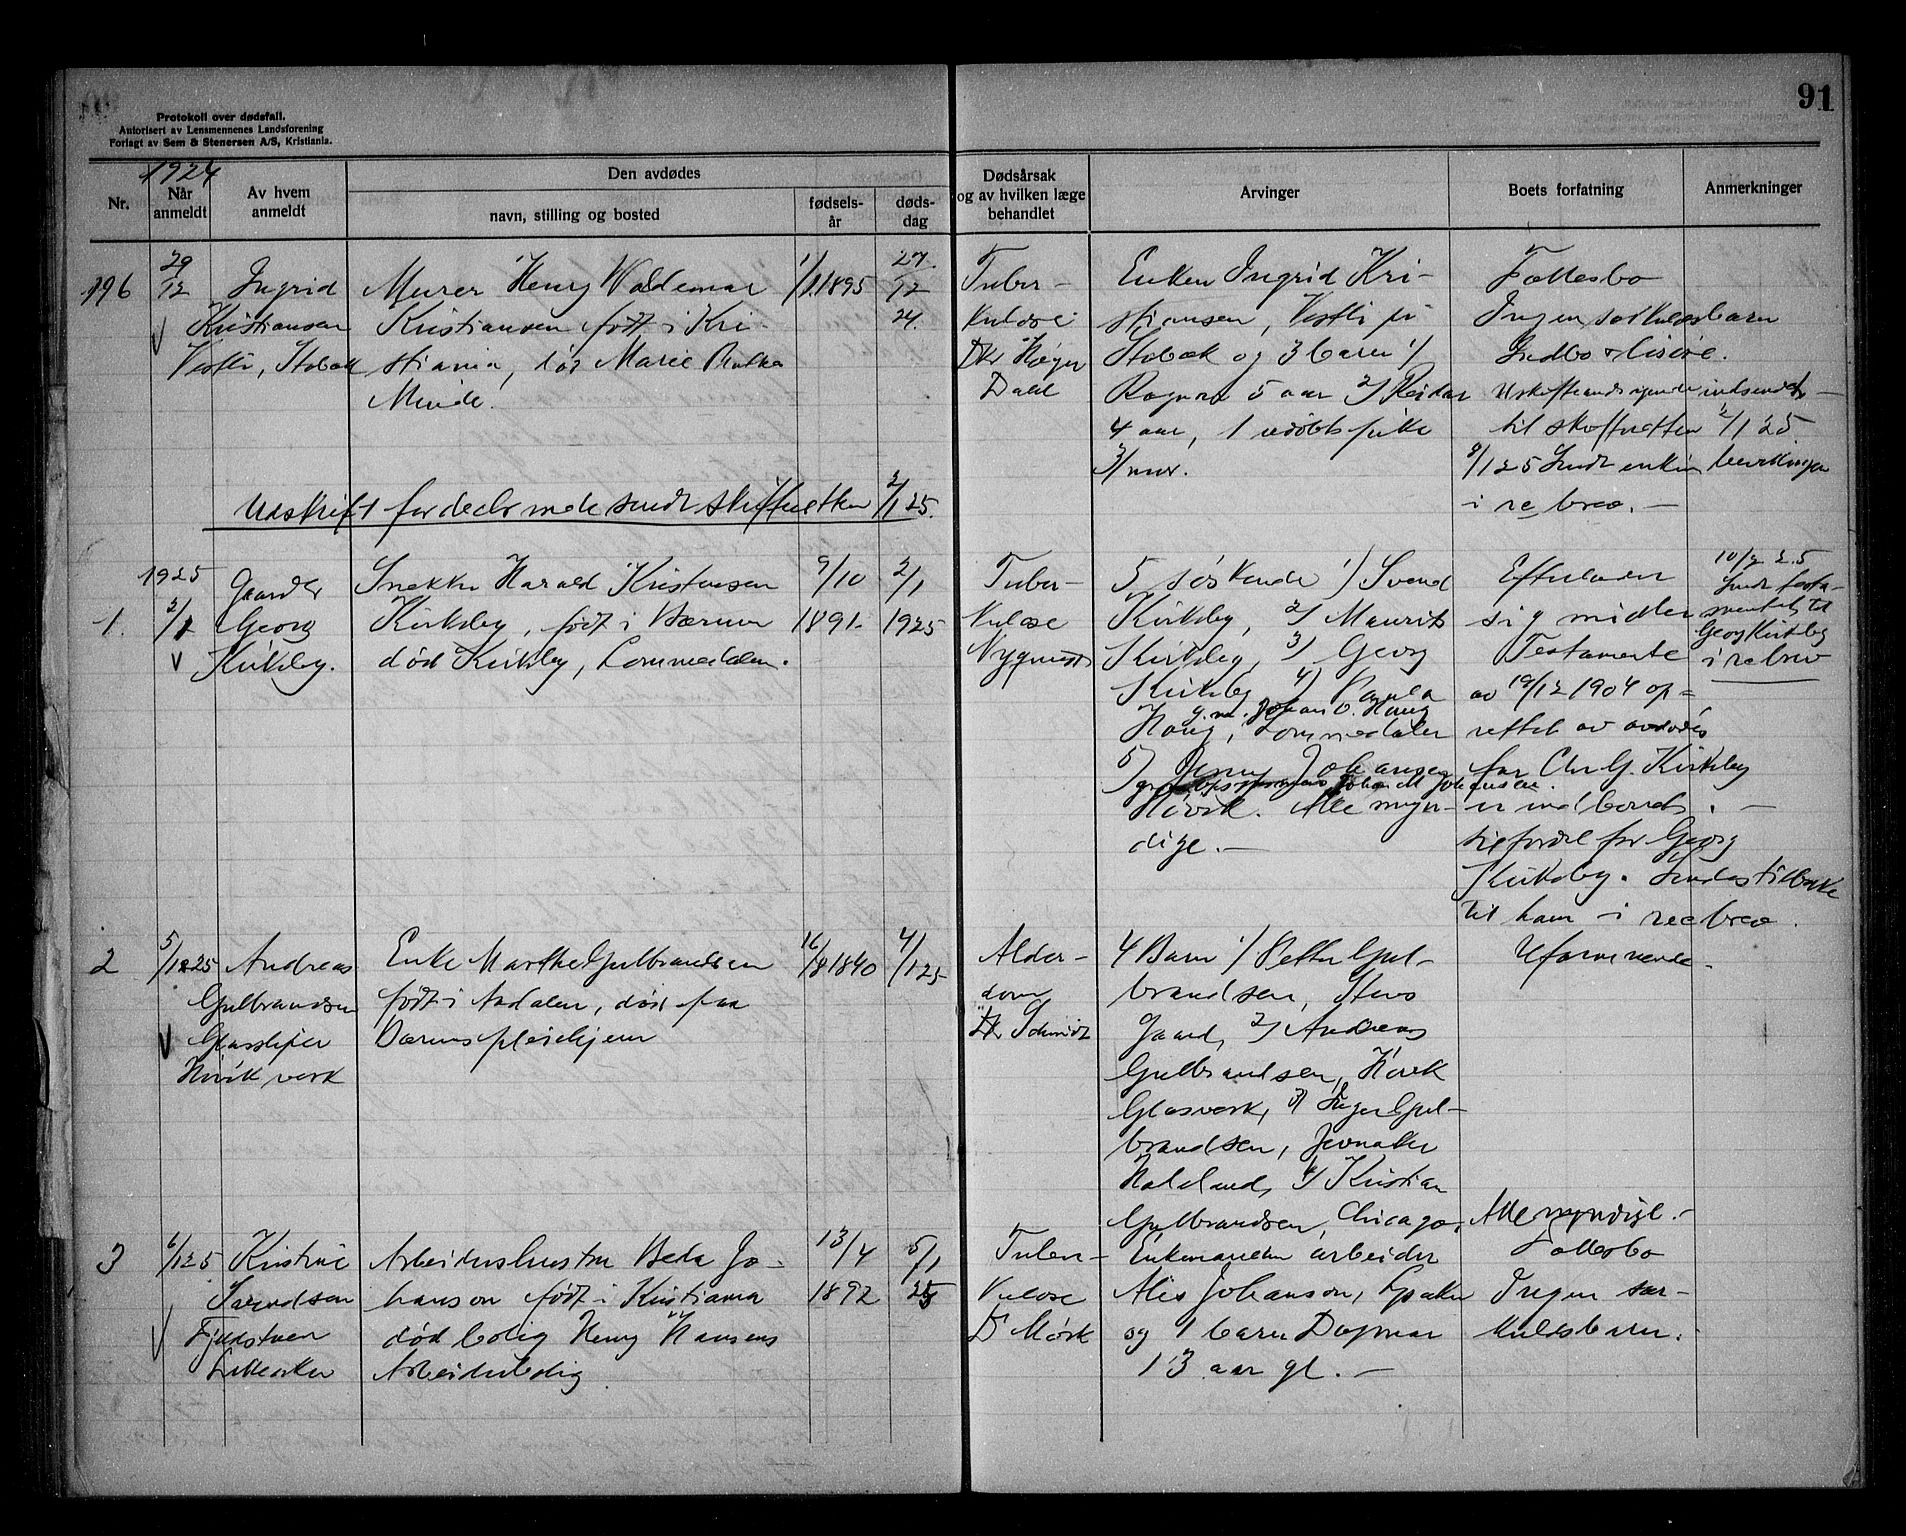 91
Protokoll over dødsfall.
Autorisert av Lensmennenes Landsforening
Forlagt av Sem & Stenersen A/S, Kristiania.
1924
Nr.
Når anmeldt
Av hvem anmeldt
Den avdødes
navn, stilling og bosted
fødsels-år
døds-dag
Dødsårsak og av hvilken læge behandlet
Arvinger
Boets forfatning
Anmerkninger
196
29/12
Ingrid
Kristiansen
Vestli, Stabæk
Murer Henry Waldemar
Kristiansen født i Kri-
stiania, død Marie
Minde.
1895
27/12
24.
Tuber-
kulose
Dahl
Enken Ingrid Kri-
stiansen, Vestli pr
Stabæk og 3 barn 1/
Ragnar 5 aar 2/ Reidar
4 aar, 1 udøbt pike
3/ mnr.
Fællesbo
Ingen særkuldsbarn
indsendt
til skifteretten 2/1 25.
9/1 25 Sendt enken
i rebrev. —
Utskrift for dedsmele sendt skifteretten 2/1 25.
1925
1.
2/1
Gaardbr
Georg
Kirkeby.
Snekker Harald Kristensen
Kirkeby, født i Bærum
død Kirkeby, Lommedalen.
9/10
1891.
2/1
1925
Tuber-
kulose
5 søskende 1/ Svend
Kirkeby, 2/ Maurits
Kirkeby, 3/ Georg
Kirkeby 4/ Paula
g.m. Johan O. Haug
Haug, Lommedalen
5/ Jenny Johansen
Johansen.
Høvik. Alle myn-
dige. —
Efterlader
sig midler
Testamente
av 19/12 1904 op-
rettet av avdøde
for Chr G. Kirkeby
for Georg
Kirkeby. Sendes tilbake
til ham i recbrev.
10/2 25
Sendt testa-
mentet til
Georg Kirkeby
i rebrev
2
5/1 25
Andreas
Gulbrandsen
Glassliper
Høvik verk
Enke Marthe Gulbrandsen
født i Aadalen, død paa
Bærums pleiehjem
16/8 1840
4/1 25
Alder-
dom
Dr Schmidt
4 Barn 1/ Petter Gul-
brandsen, Stens
Gaard, 2/ Andreas
Gulbrandsen, Høvik
Glasverk, 3/ Inger Gul-
brandsen, Jevnaker
Hadeland, 4/ Kristian
Gulbrandsen, Chicago,
Alle myndige. —
Uformuende.
3
6/1 25
Kristine
Svendsen
Fjeldstuen
Arbeiderhustru Beda Jo-
hanson født i Kristiania
død bolig Henry Hansens
Arbeiderbolig
13/4
1892
5/1
25
Tuber-
kulose
Dr Mørk
Enkemanden arbeider
Johanson,
og 1 barn Dagmar
13 aar gl. —
Fællesbo
Ingen sær-
kuldsbarn.